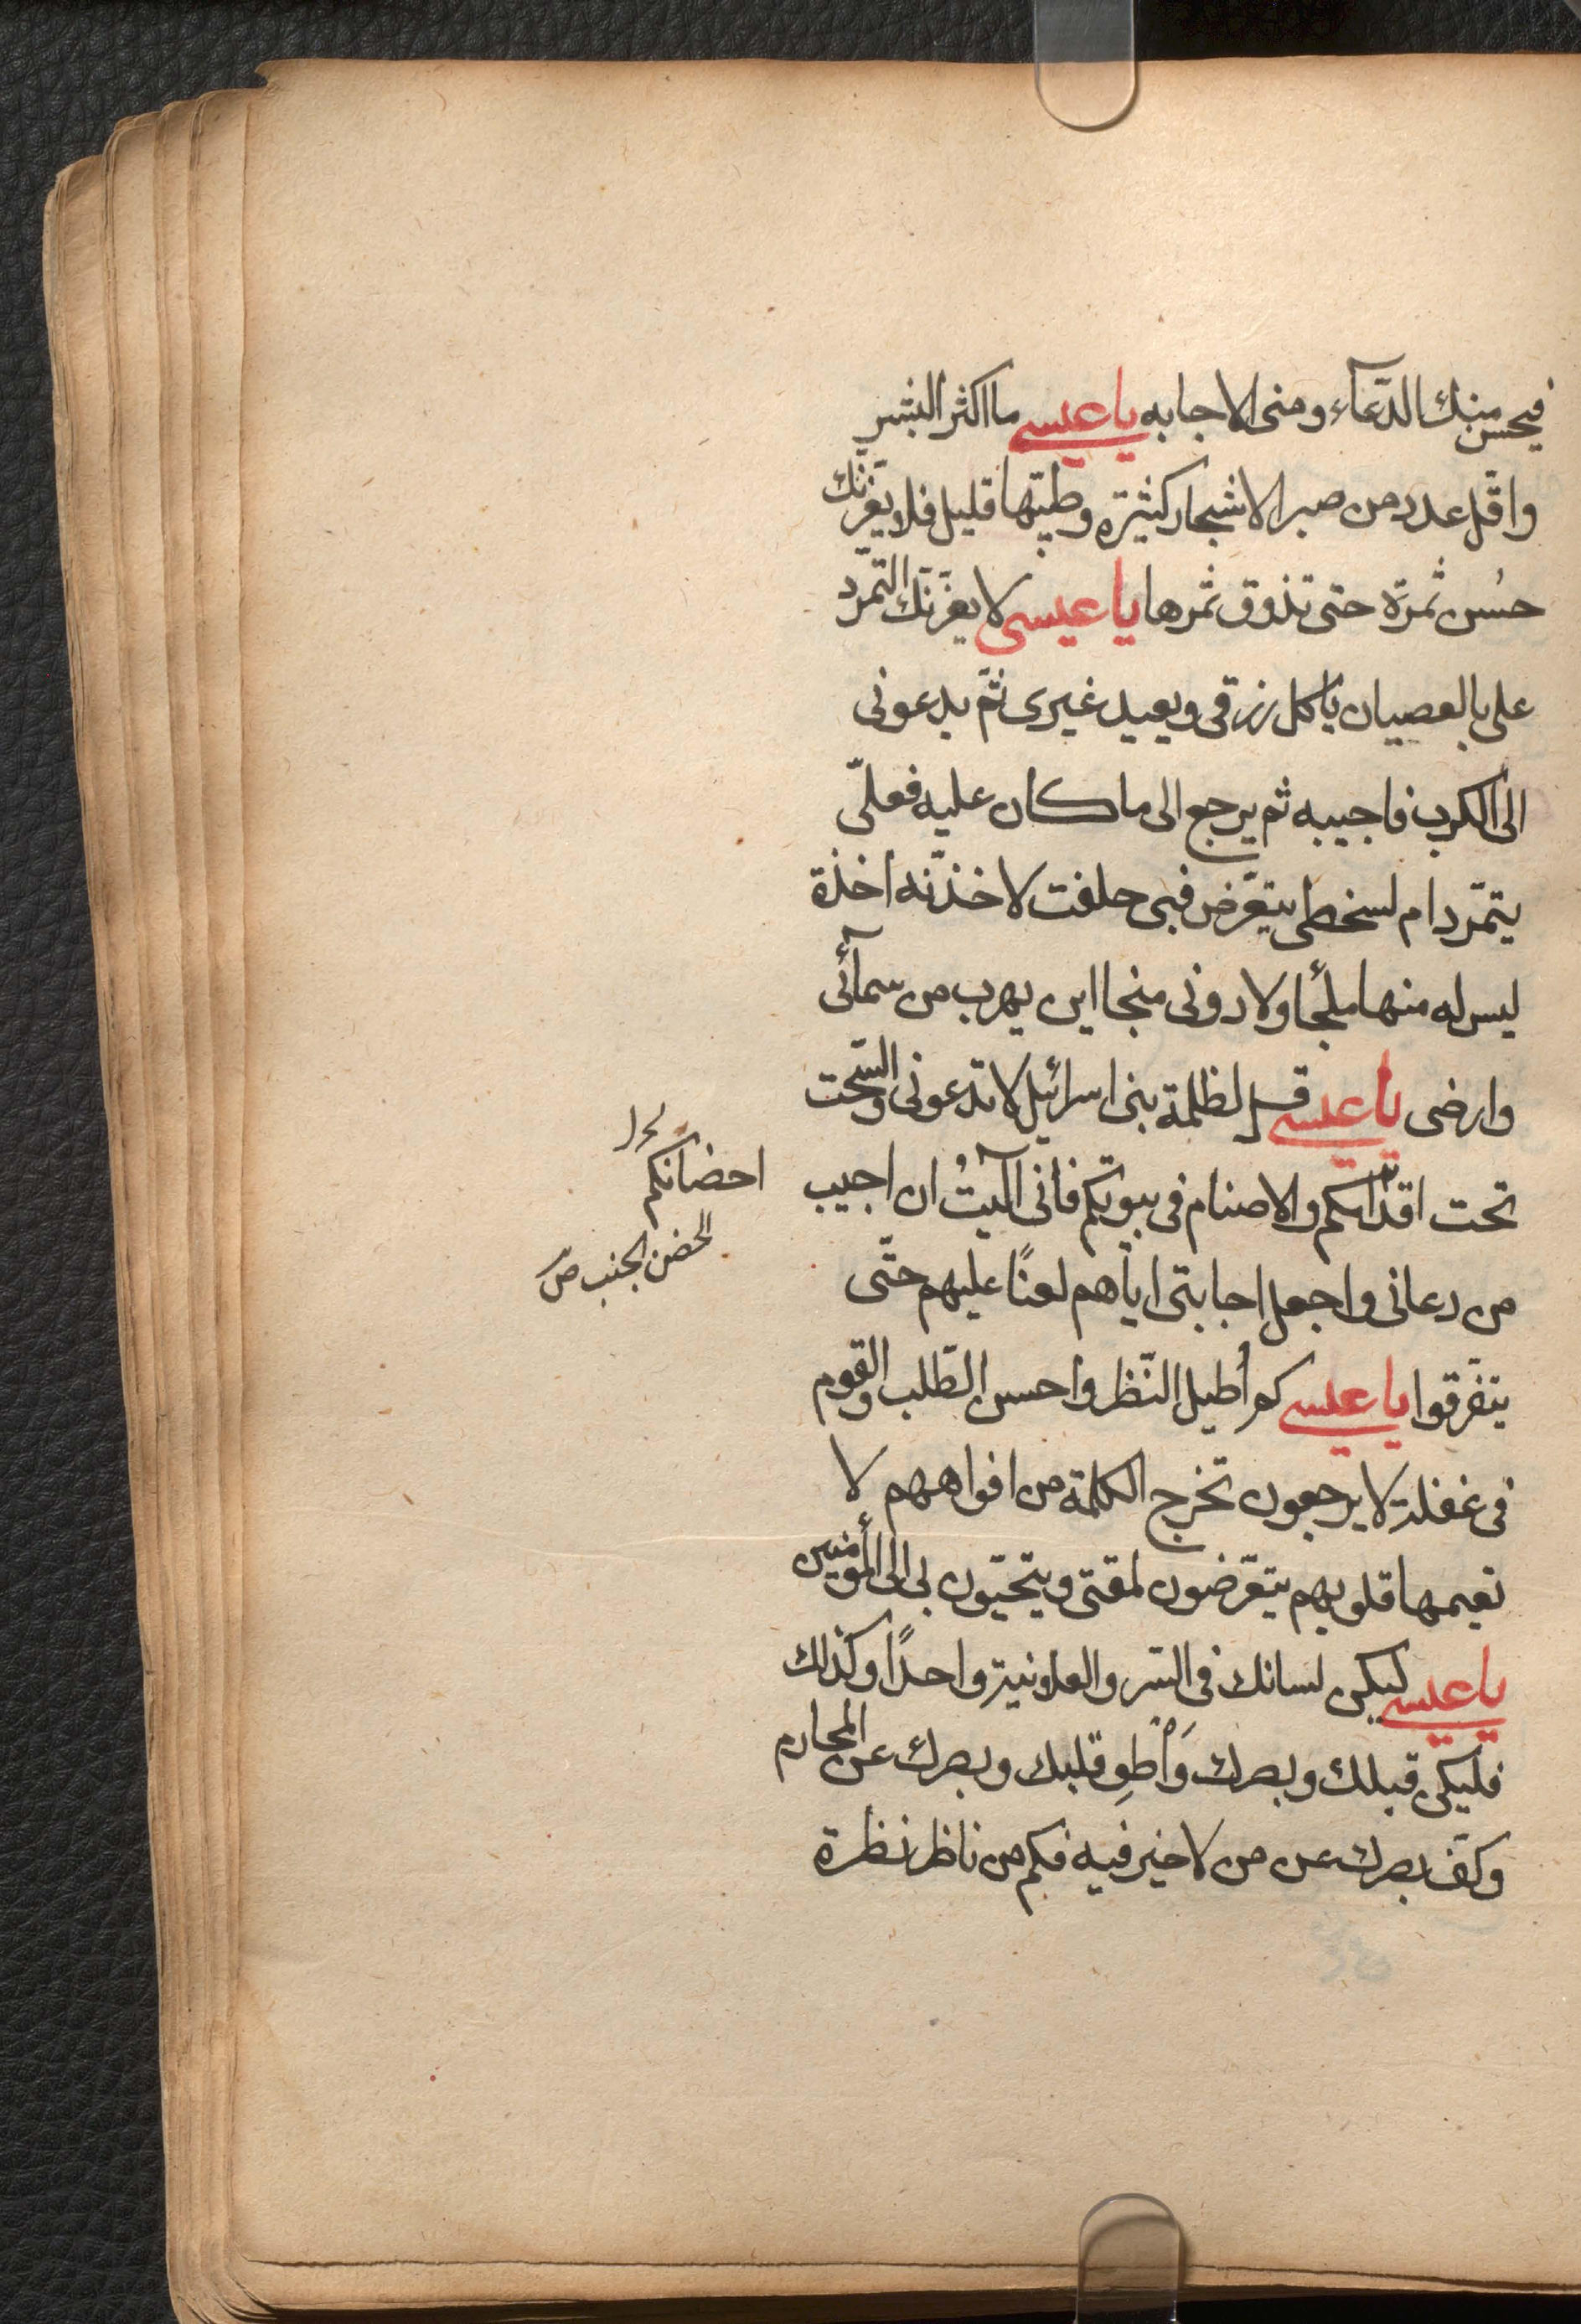 فيحسن منك الدّعآء ومنى الاجابه يا عيسى ما اكثر البشر
واقّل عدد من صبر الاشجار كثيرة وطيّبها قليل فلا يغرّنّك
حسُن ثمرة حتى تذوق ثمرها يا عيسى لا يغرّنّك التمرّد
على بالعصيان ياكل رزقى ويعبد غيرى ثمّ يدعونى
الى الكرب فاجيبه ثم يرجع الى ما كان عليه فعلىّ
يتمرّد ام لسخطى يتعرّض فبى حلفت لاخذنّه اخذة
ليس له منها ملجأ ولا دونى منجا اين يهرب من سمآئى
وارضى يا عيسى قل لظلمة بنى اسرائيل لا تدعونى والسّحت
تحت اقدامكم والاصنام فى بيوتكم فانّى آليتُ ان اجيب
احضانكم
الحضن الجنب ص
من دعانى واجعل اجابتى ايّاهم لعنًا عليهم حتّى
يتفرّقوا يا عيسى كم أطيل النّظر واحسن الطّلب والقوم
فى غفلة لا يرجعون تخرج الكلمة من افواههم لا
تعيها قلوبهم يتعرّضون لمقتى ويتحبّبون بى الى المؤمنين
يا عيسى ليكن لسانك فى السّر والعلانية واحدًا وكذالك
فليكن قبلك وبصرك وَاْطوِ قلبك وبصرك عن المحارم
وكفّ بصرك عن من لا خير فيه فكم من ناظر نظرة